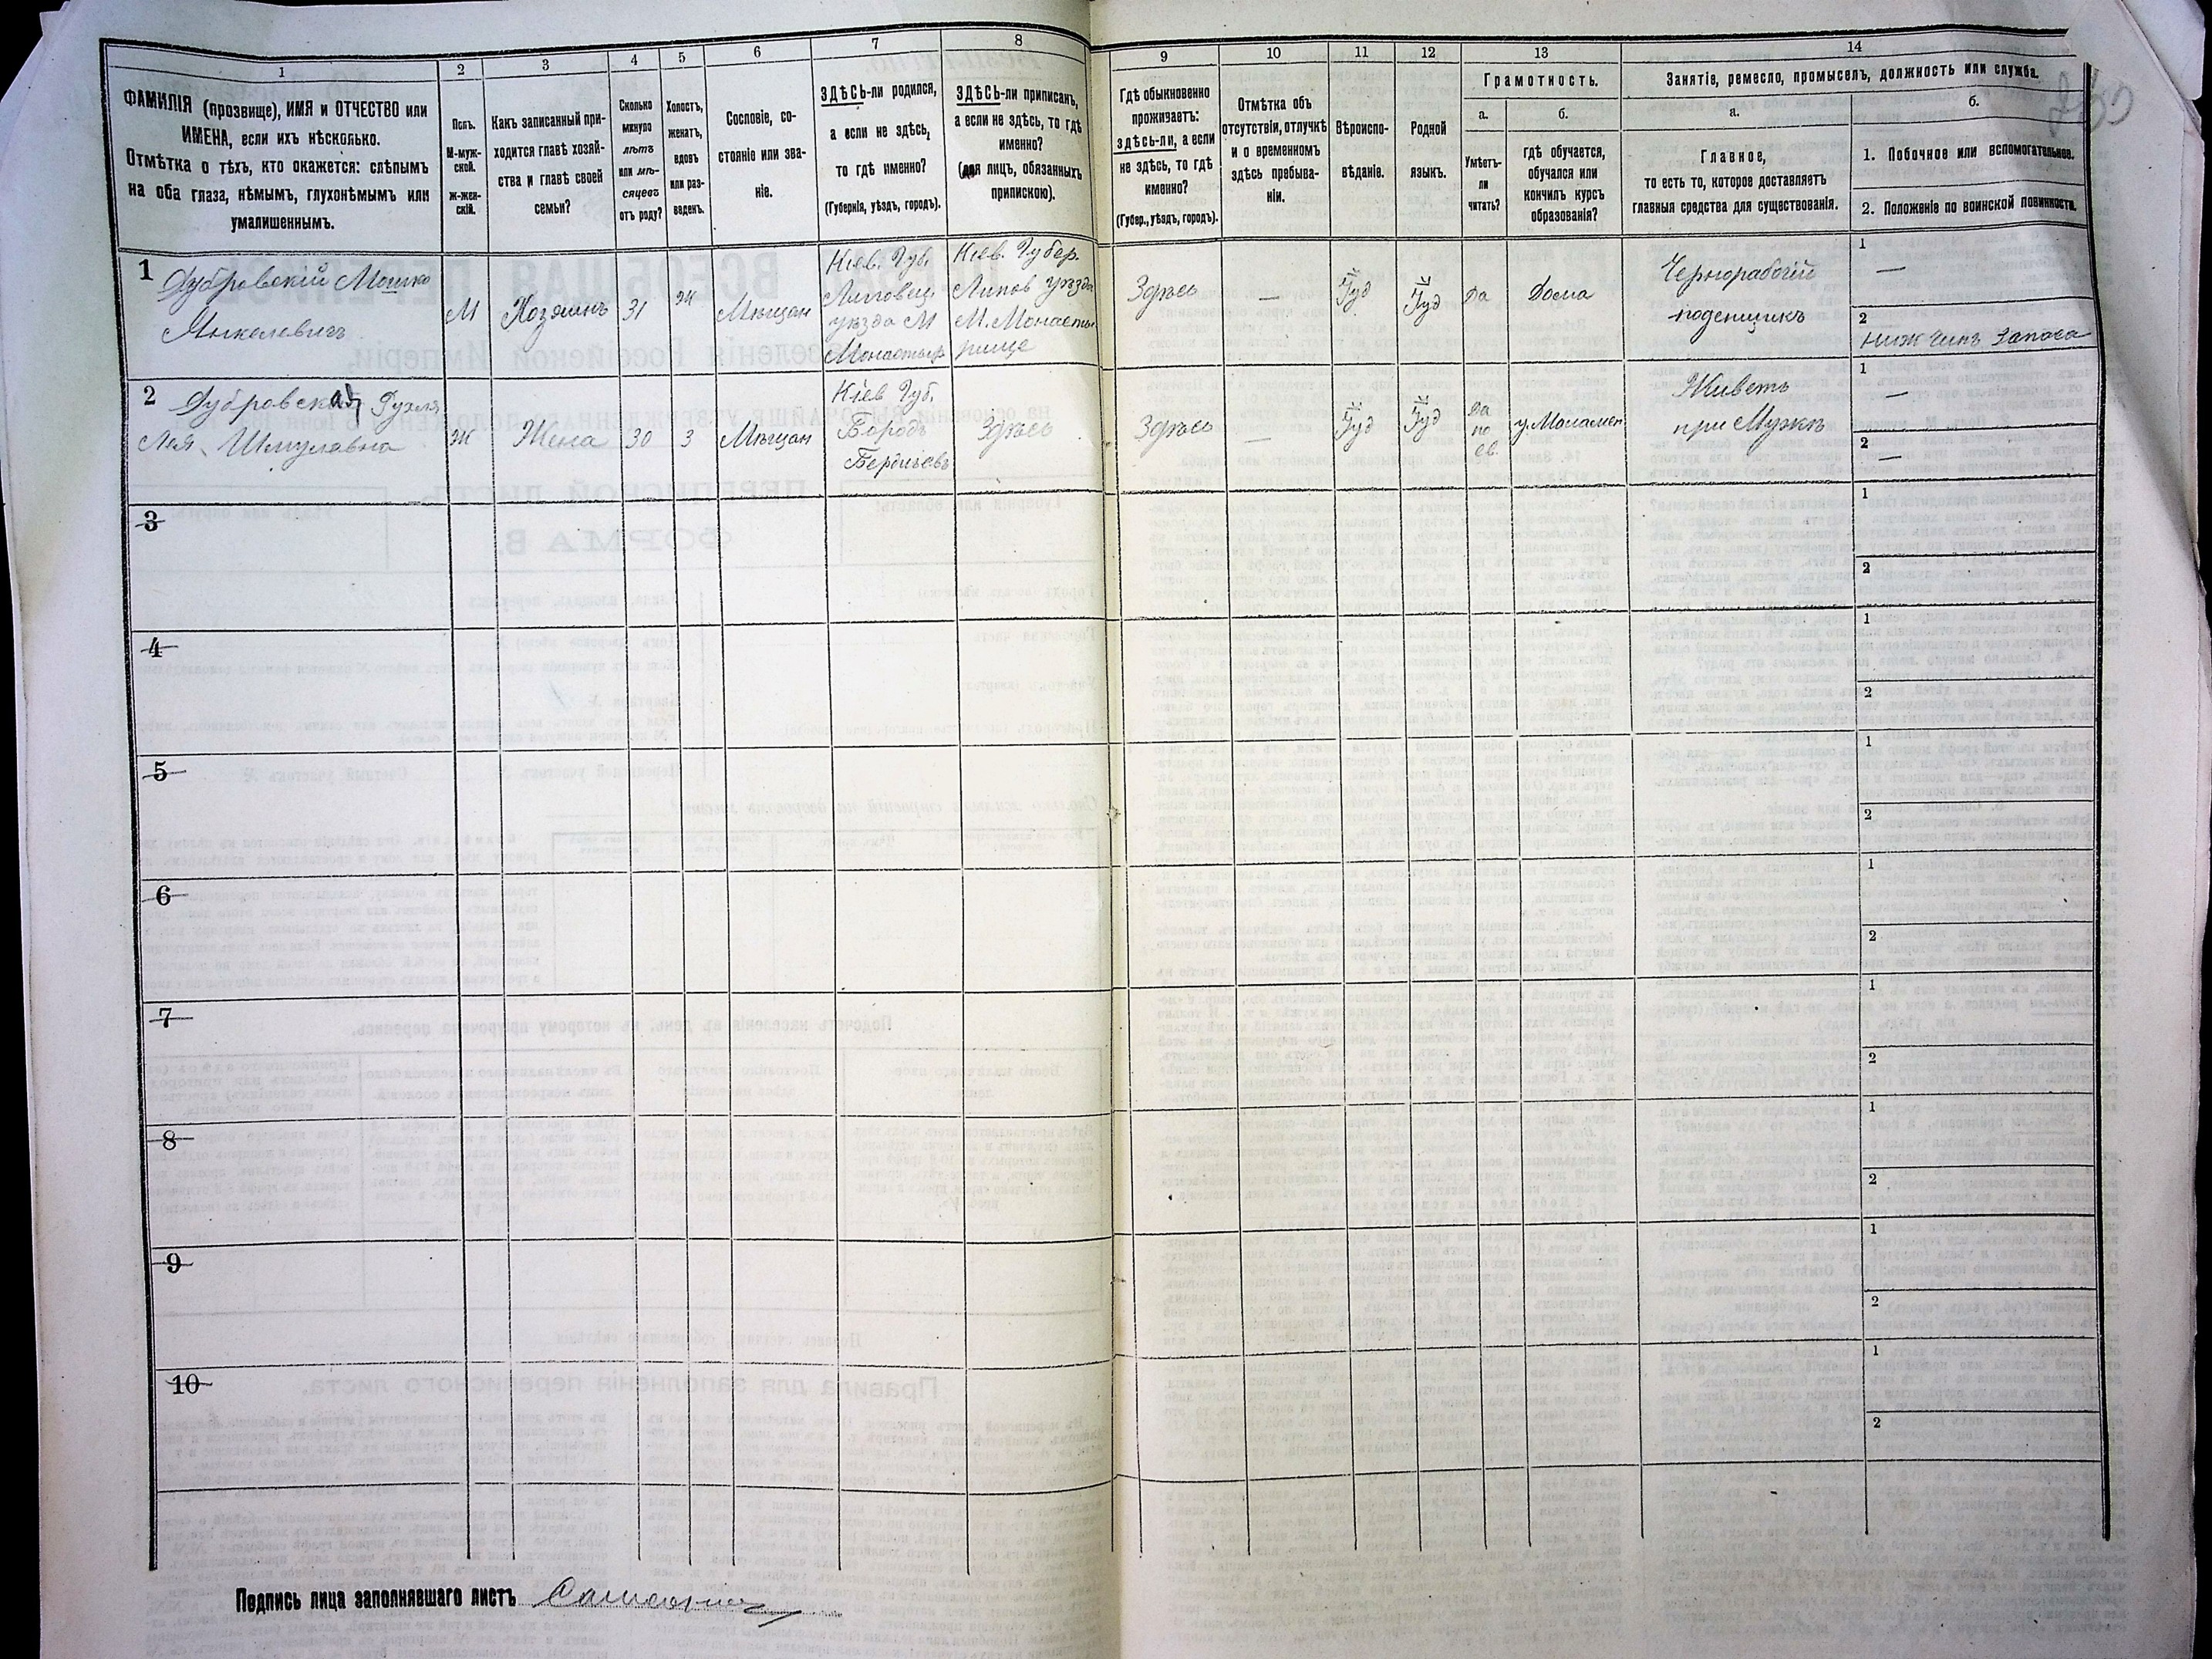 1 2 3 4 5 6 7 8 9 10 11 12 13 14
ФАМИЛІЯ (прозвище), ИМЯ и ОТЧЕСТВО или
ИМЕНА, если ихъ нѣсколько.
Отмѣтка о тѣхъ, кто окажется: слѣпымъ
на оба глаза, нѣмымъ, глухонѣмымъ или
умалишеннымъ.
Полъ.
М-муж-
ской.
ж-жен-
скій.
Какъ записанный при-
ходится главѣ хозяй-
ства и главѣ своей
семьи?
Сколько
минуло
лѣтъ
или мѣ-
сяцевъ
отъ роду?
Холостъ,
женатъ,
вдовъ
или раз-
веденъ.
Сословіе, со-
стояніе или зва-
ніе.
ЗДѢСЬ-ли родился,
а если не здѣсь,
то гдѣ именно?
(Губернія, уѣздъ, городъ).
ЗДѢСЬ-ли приписанъ,
а если не здѣсь, то гдѣ
именно?
(для лицъ, обязанныхъ
припискою).
Гдѣ обыкновенно
проживаетъ:
здѣсь-ли, а если
не здѣсь, то гдѣ
именно?
(Губер., уѣздъ, городъ).
Отмѣтка объ
отсутствіи, отлучкѣ
и о временномъ
здѣсь пребыва-
ніи.
Вѣроиспо-
вѣданіе.
Родной
языкъ.
Грамотность.
а.
Умѣетъ-
ли
читать?
б.
гдѣ обучается,
обучался или
кончилъ курсъ
образованія?
Занятіе, ремесло, промыселъ, должность или служба.
а.
Главное,
то есть то, которое доставляетъ
главныя средства для существованія.
б.
1. Побочное или вспомогательное.
2. Положеніе по воинской повинности.
1 Дубровскій Мошко
Янкелевичъ
М
Хозяинъ
31
Ж
Мѣщан
Кіев. Губ.
Липовец.
уѣзда М
Монастыр
Кіев. Губер.
Липов уѣзда
М. Монасты-
рище
Здѣсь
—
Іуд
Іуд
Да
Дома
Чернорабочій
поденщикъ
1
—
2
ниж чинъ Запаса
2 Дубровская Рухля
Лея Шмулевна
Ж
Жена
30
З
Мѣщан
Кіев Губ.
Городъ
Бердичевъ
Здѣсь
Здѣсь
—
Іуд
Іуд
Да
по
ев.
у Меламеп
Живетъ
при Мужѣ
1
—
2
—
3
1
2
4
1
2
5
1
2
6
1
2
7
1
2
8
1
2
9
1
2
10
1
2
Подпись лица заполнявшаго листъ